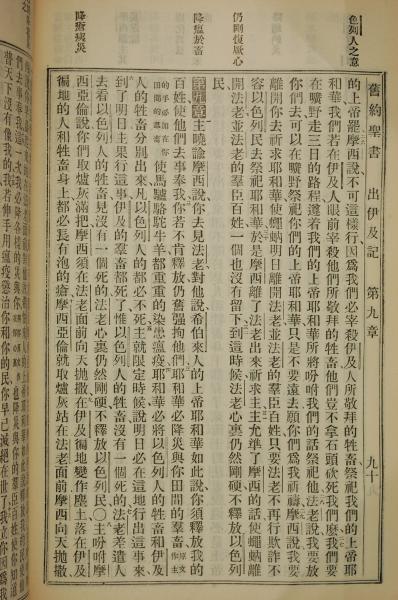 色列人之意
仍剛復厥心
降瘟於畜
降瘡病災
舊約聖書 出伊及記 第九章 九十
的上帝龍摩西說不可這樣行因爲我們必宰殺伊及人所敬拜的牲畜祭祀我們的上帝耶
和華我們若在伊及人眼前宰殺他們所敬拜的牲畜他們豈不拿石頭砍死我們麽我們要
在曠野走三日的路程遵着我們的上帝耶和華所將吩咐我們的話祭祀他法老說我要放
你們去可以在曠野祭祀你們的上帝耶和華只是不要遠去願你們爲我祈禱摩西說我要
離開你去祈求耶和華使蠅蚋明日離開法老並法老的羣臣百姓只要法老不再行欺詐不
容以色列民去祭祀耶和華於是摩西離了法老出來祈求主主允準了摩西的話使蠅蚋離
開法老並法老的羣臣百姓一個也沒有留下到這時候法老心裏仍然剛硬不釋放以色列
民
第九章主曉諭摩西說你去見法老對他說希伯來人的上帝耶和華如此說你須釋放我的
百姓使他們去事奉我你若不肯釋放仍舊强拘他們耶和華必降災與你田間的羣畜原文作主
的手必加在你田間的羣畜使馬驢駱駝牛羊都重重的染患瘟疫耶和華必將以色列人的牲畜和伊及
人的牲畜分別出來凡以色列人的都必不死主就限定時候說明日必在這地行出這事來
到了明日主果行這事伊及的羣畜都死了惟以色列人的牲畜沒有一個死的法老差遣人
去看以色列人的牲畜見沒有一個死的法老心裏仍然剛硬不釋放以色列民〇主吩咐摩
西亞倫說你們取爐灰滿把摩西須在法老面前向天拋撒在伊及徧地變作塵土落在伊及
徧地的人和牲畜身上都必長有泡的瘡摩西亞倫就取爐灰站在法老面前摩西向天拋撒